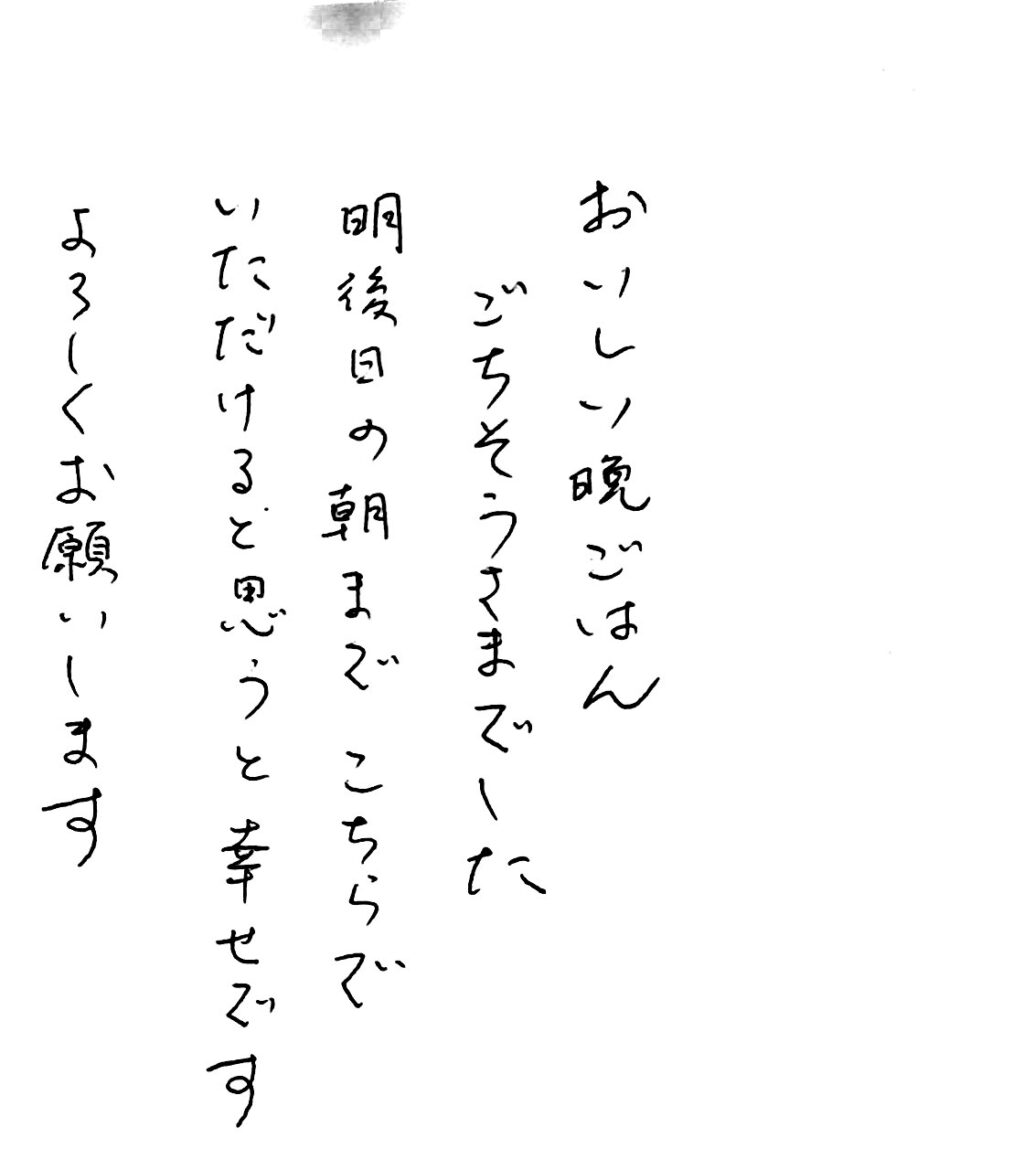 おいしい晩ごはん
ごちそうさまでした
明後日の朝まで こちらで
いただけると思うと幸せです
よろしくお願いします